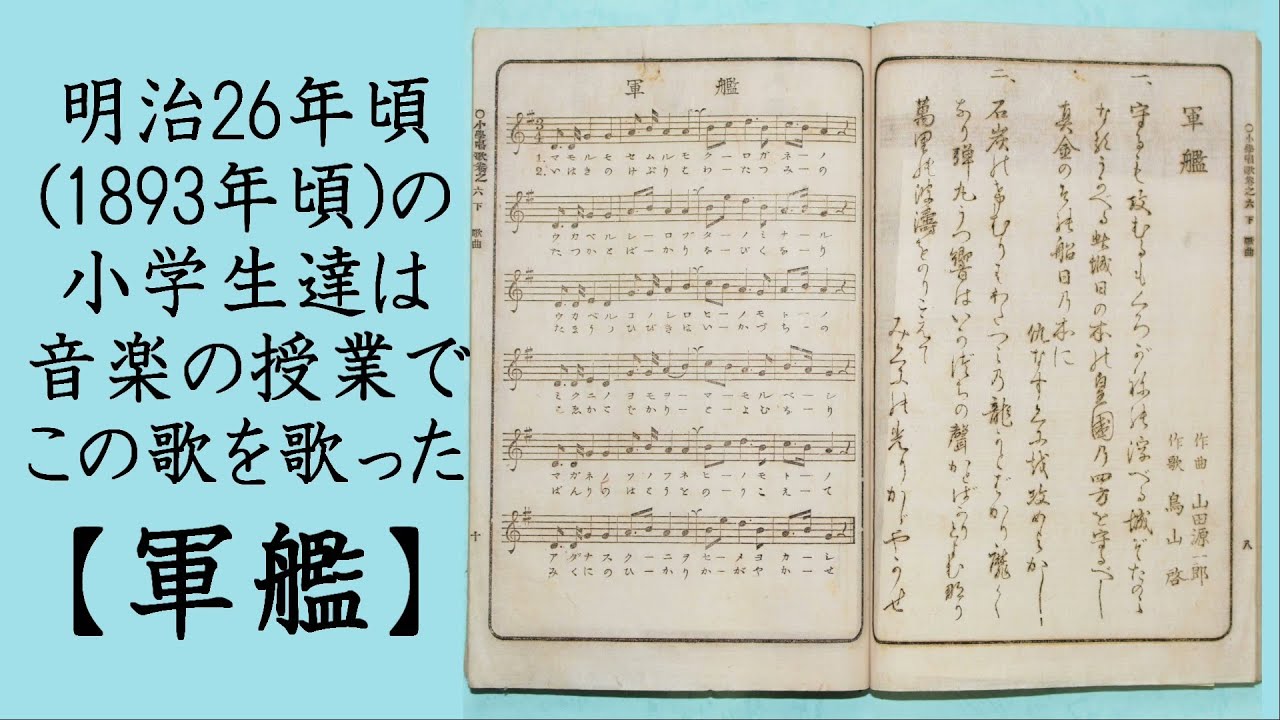 明治26年頃
(1893年頃)の
小学生達は
音楽の授業で
この歌を歌った
【軍艦】
○小學唱歌巻之六 下 歌曲
軍艦
1. マモルモセムルモクーロガネーノ
2. いはきのけぶりはわたつみーの
ウカベルシーロゾターノミナール
たつかとばーかりなーびくなーり
ウカベルソノシロヒーノモトーノ
たまうつひびきはいーかづちーの
ミクニノヨモヲーマーモルベーシ
こゑかとばかりーどーよむなーり
マガネノソノフネヒーノモトーニ
ばんりのはとうをのーりこえーて
アダナスクーニヲセーメヨカーシ
みくにのひーかりかーがやかーせ
十
○小學唱歌巻之六 下 歌曲
軍艦
作曲 山田源一郎
作歌 鳥山啓
一、守るも攻むるもくろがねの浮べる城ぞたのみ
なるうかべる其城日の本の皇國の四方を守るべし
真金のその船日乃本に
仇なすくにを攻めよかし
二、石炭のけむりはわたつみの龍かとばかり靡く
なり弾丸うつ響はいかづちの聲かとばかりどよむなり
萬里の波濤をのりこえて
みくにの光りかがやかせ
八